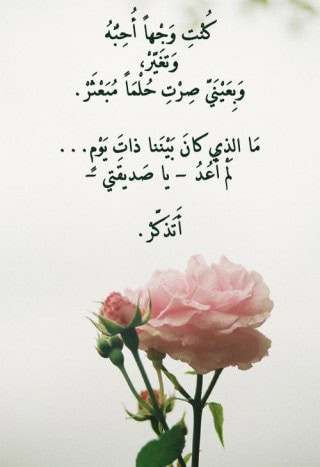 كُنْتِ وَجْهاً أُحِبُّهُ
وَتَغَيَّرْ،
وَبِعَيْنَيَّ صِرْتِ حُلْمَاً مُبَعْثَرْ.
مَا الذي كانَ بَيْنَنا ذاتَ يَوْمٍ...
لَمْ أَعُدْ – يا صَديقَتي –
أَتَذكّرْ.